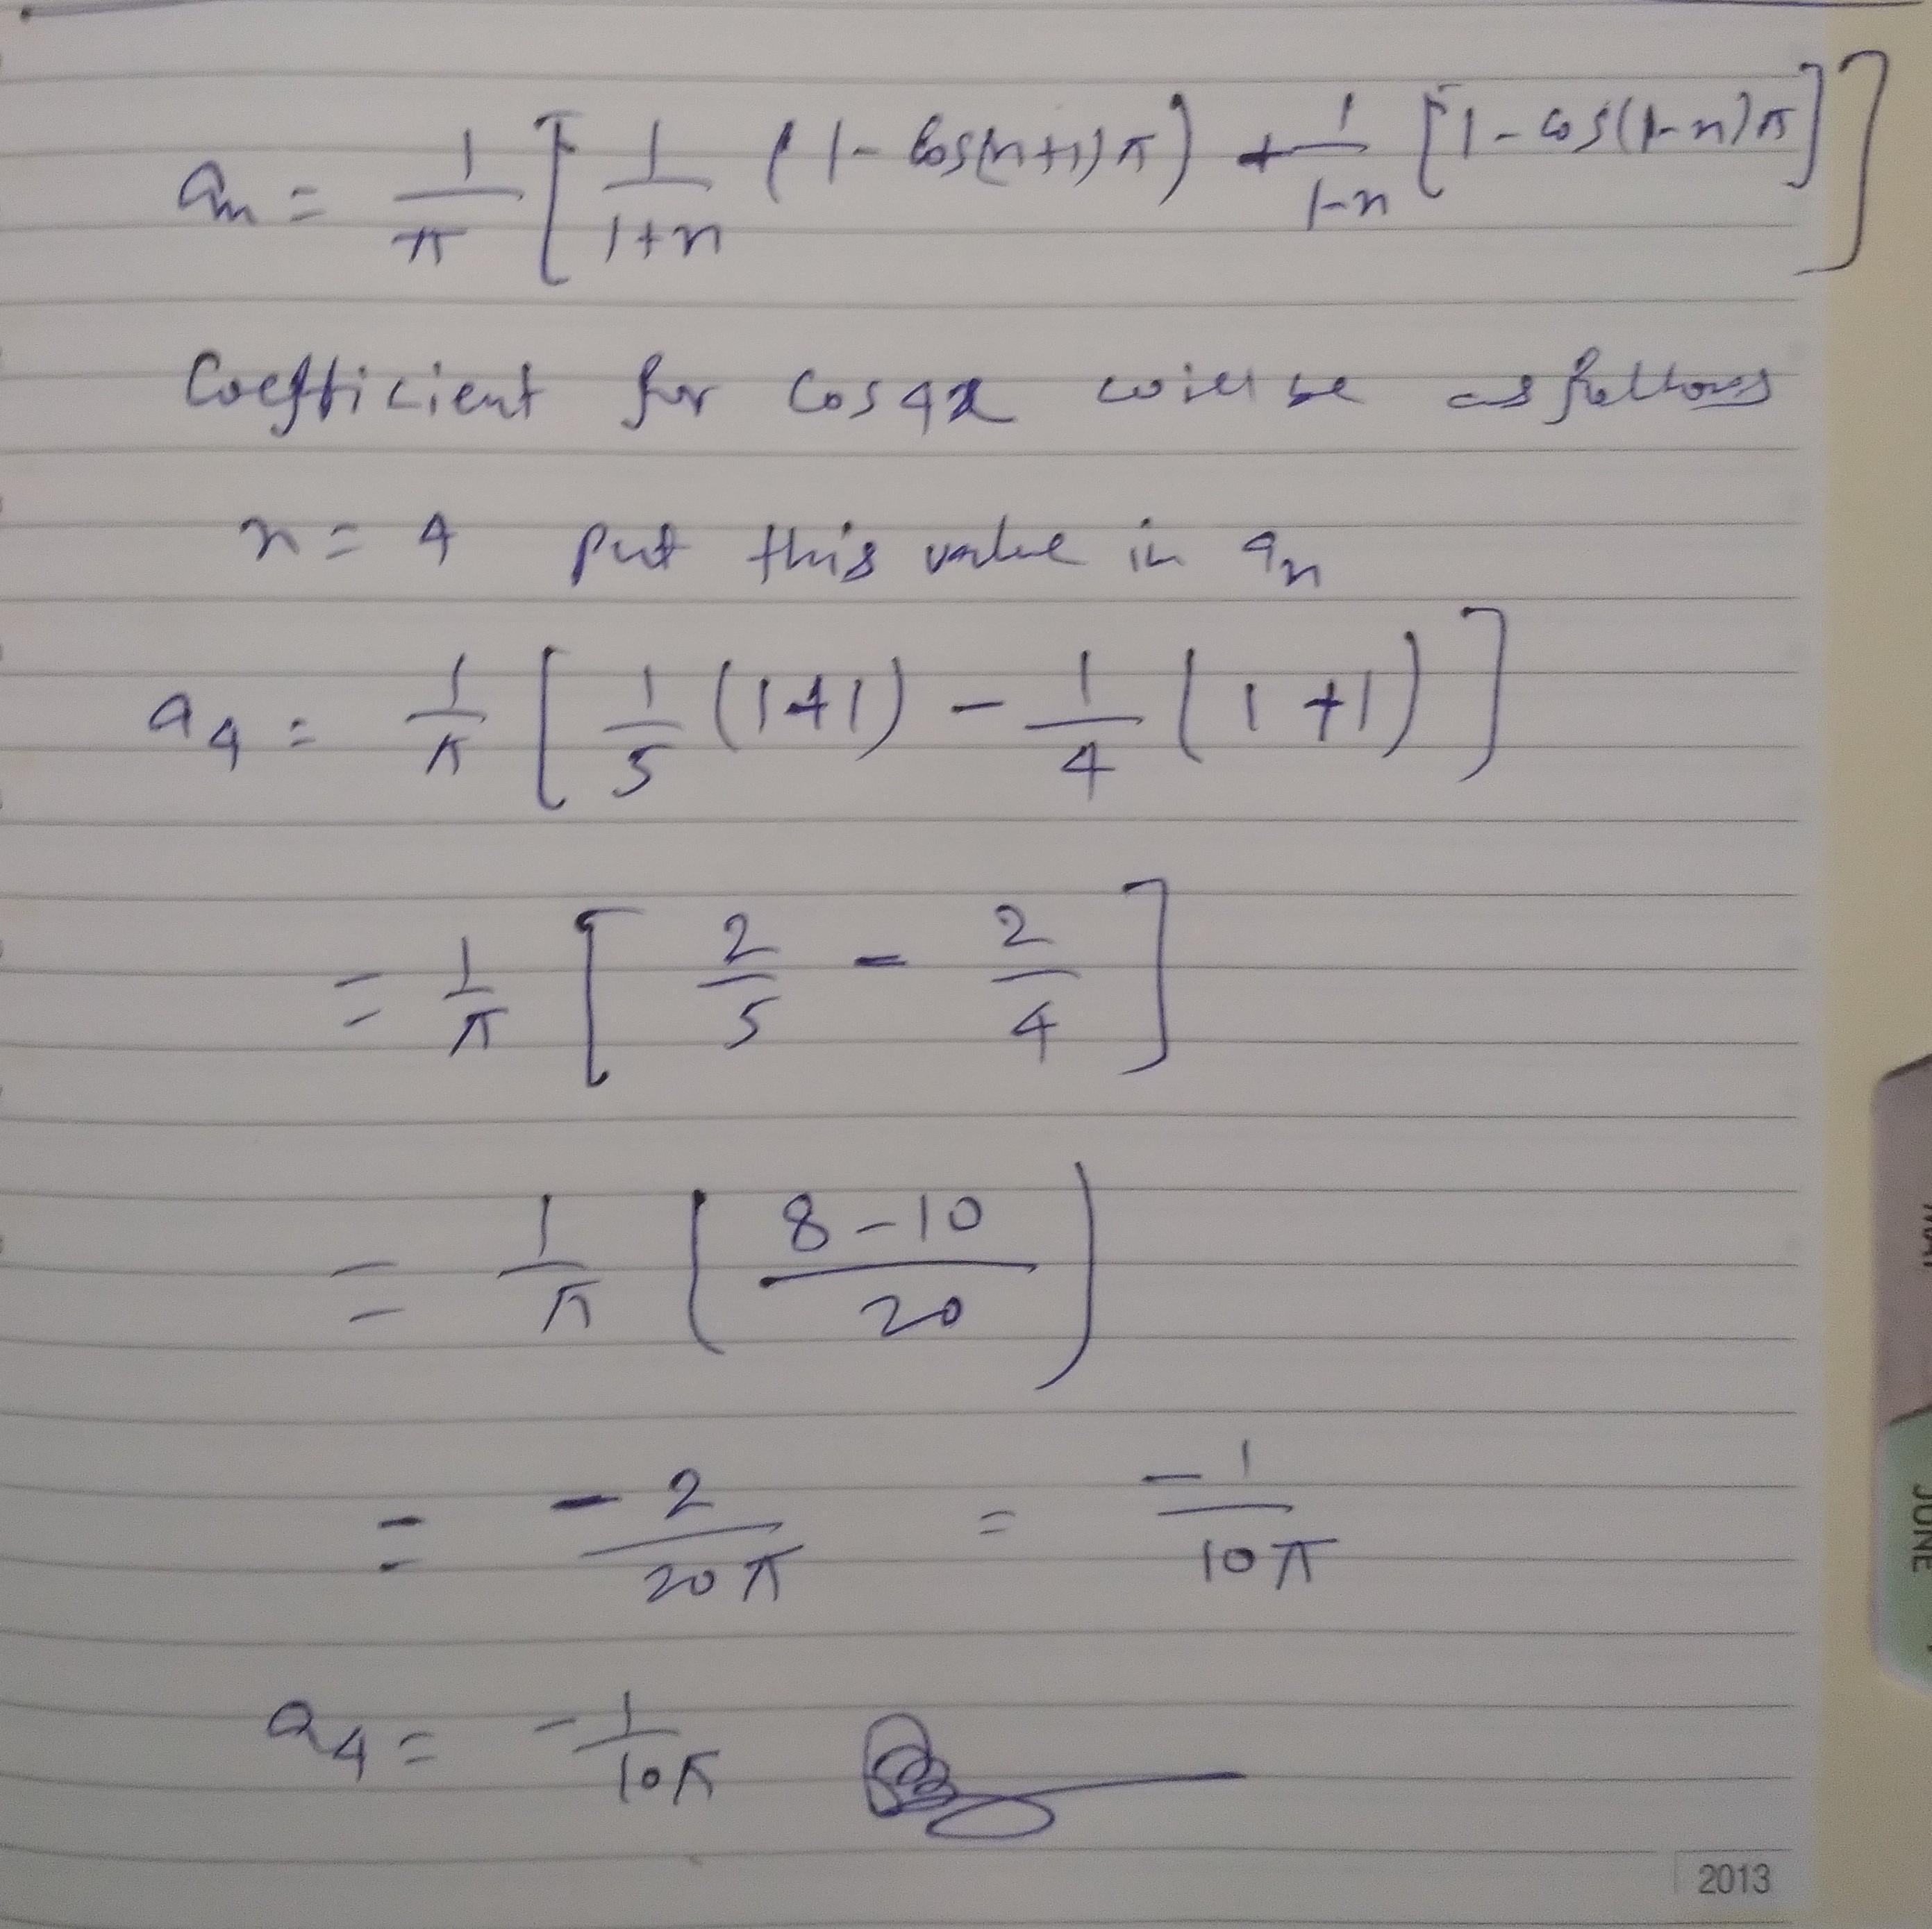 an = 1/π [ 1/(1+n) (1 - cos(n+1)π) + 1/(1-n) [1 - cos(1-n)π] ]
Coefficient for cos4x will be as follows
n = 4 put this value in an
a4 = 1/π [ 1/5 (1+1) - 1/4 (1+1) ]
= 1/π [ 2/5 - 2/4 ]
= 1/π ( (8-10)/20 )
= -2/20π = -1/10π
a4 = -1/10π
JUNE
2013